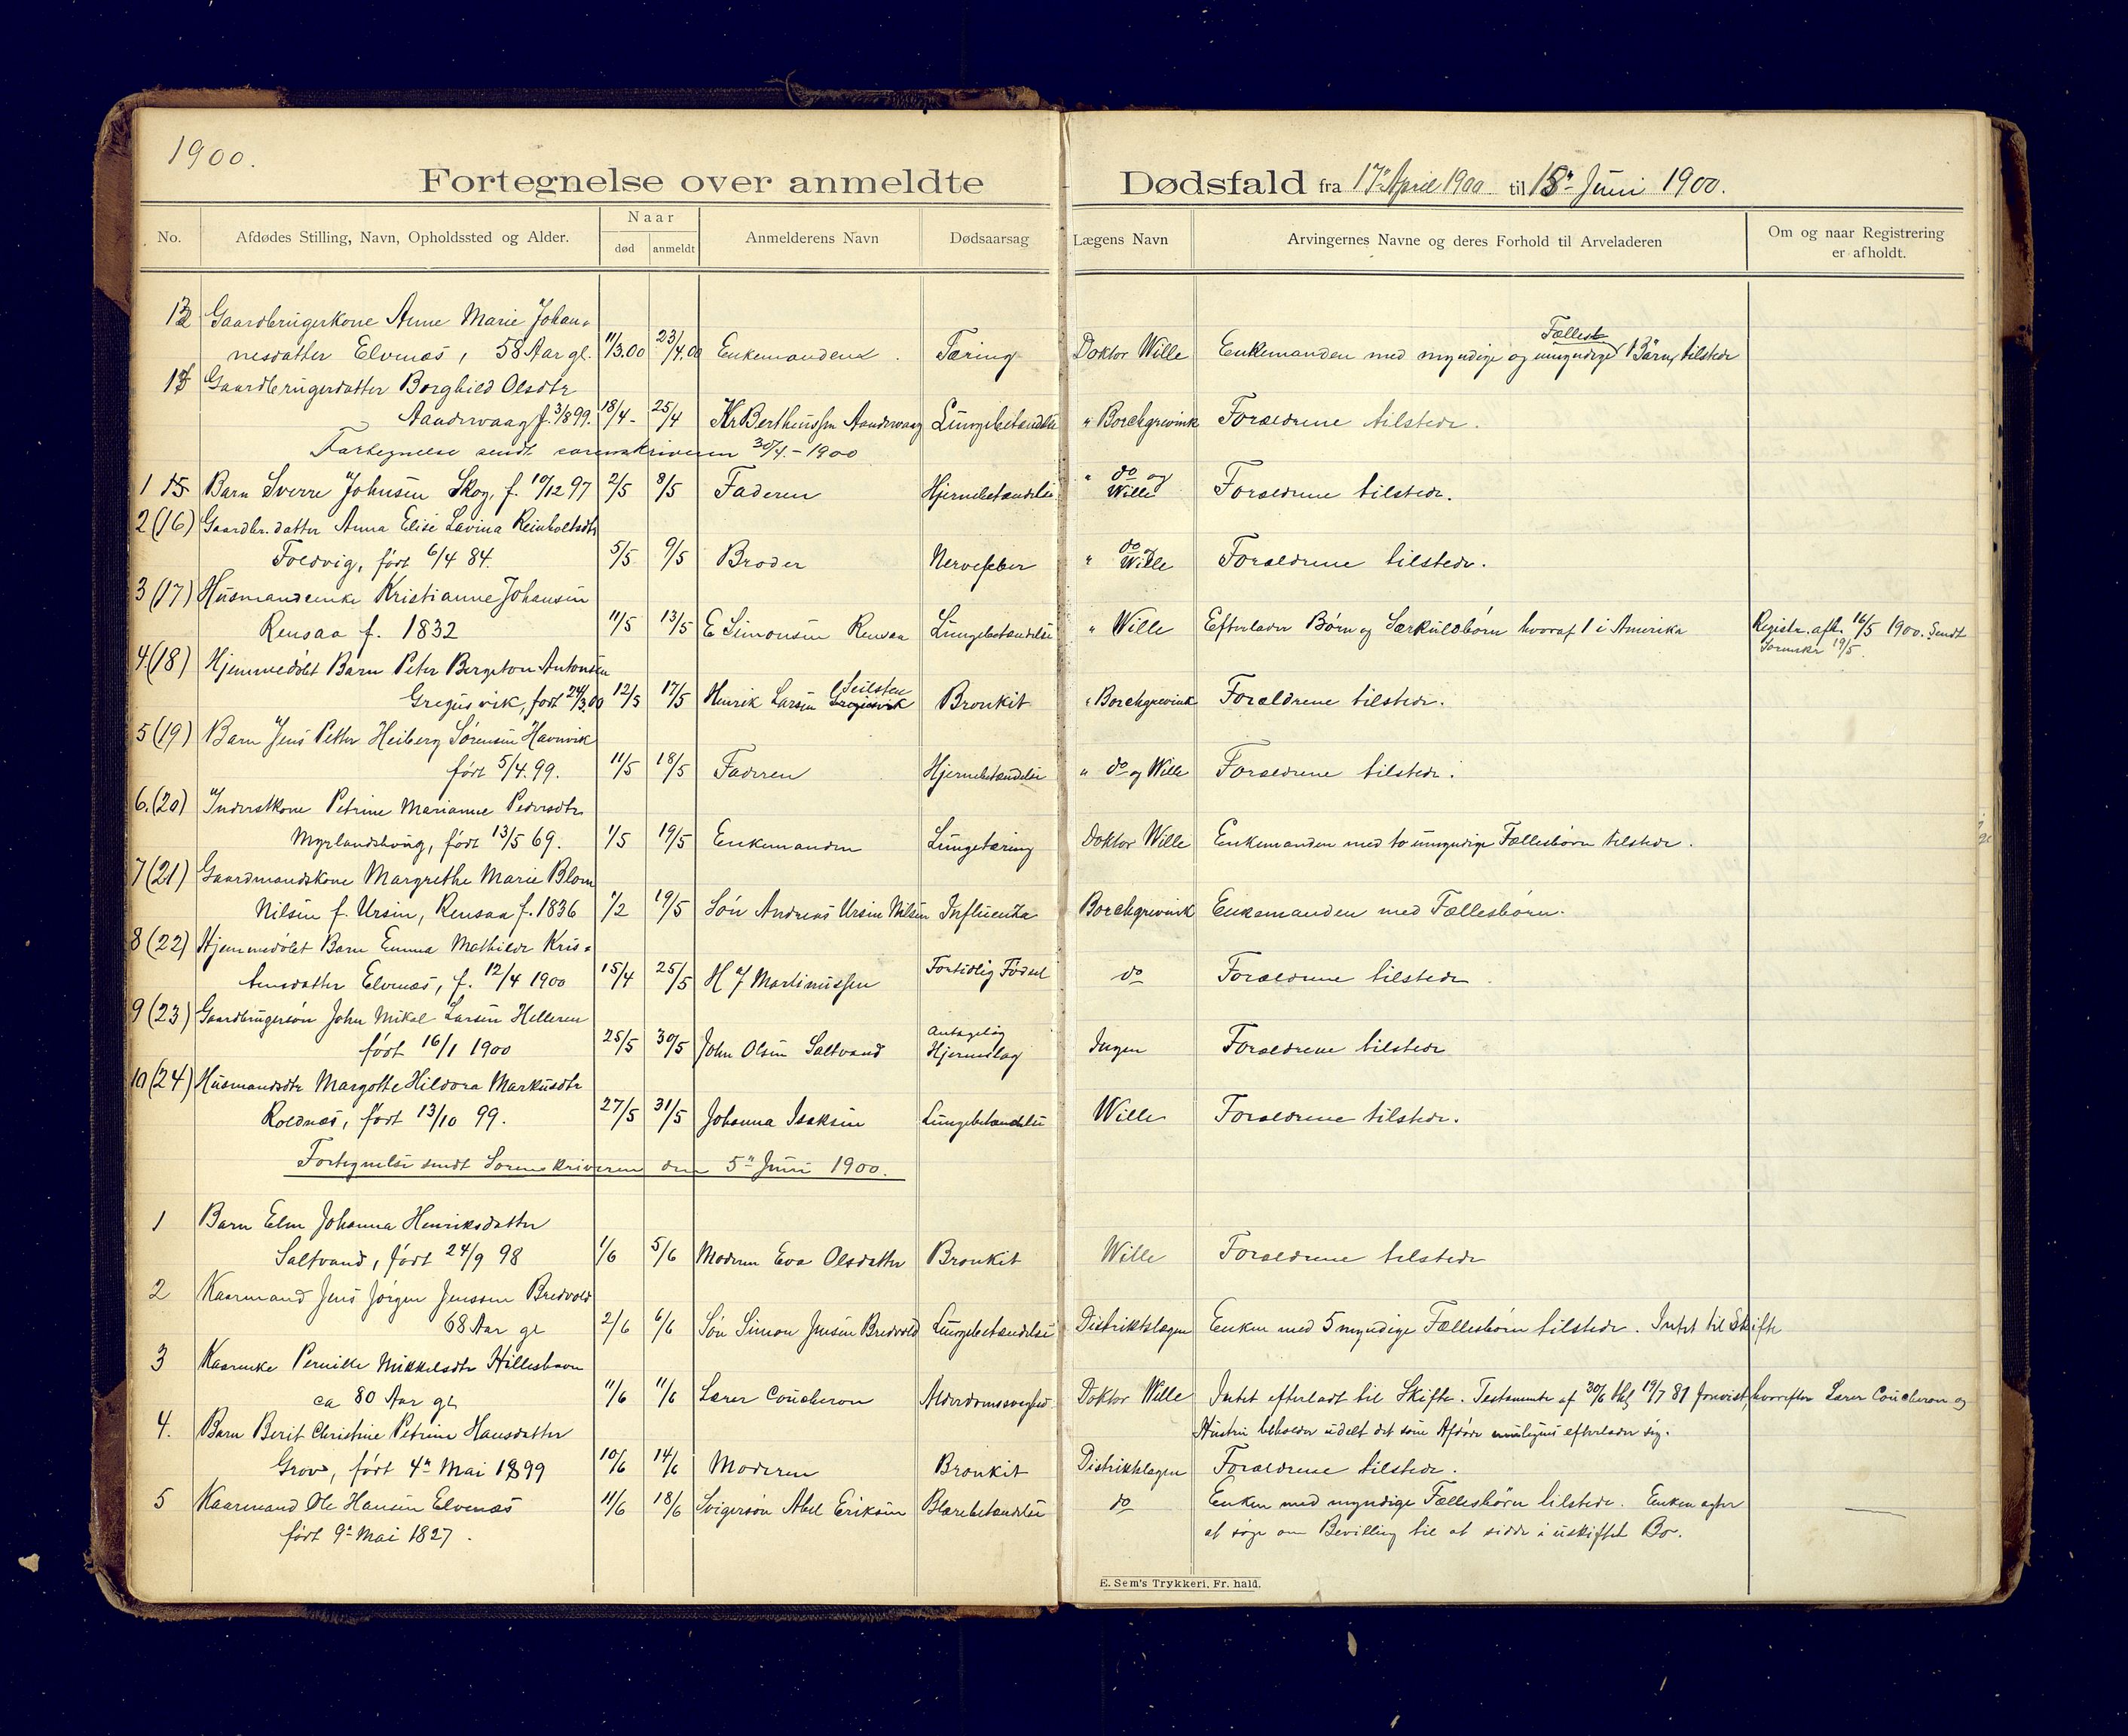 1900.
Fortegnelse over anmeldte
Dødsfald fra 17de April 1900 til 18de Juni 1900.
No.
Afdødes Stilling, Navn, Opholdssted og Alder.
Naar
død
anmeldt
Anmelderens Navn
Dødsaarsag
Lægens Navn
Arvingernes Navne og deres Forhold til Arveladeren
Om og naar Registrering
er afholdt.
Gaardbrugerkone Anne Marie Johan-
Fælles
nesdatter Elvenæs, 58 Aar gl. 11/3.00 23/4.00 Enkemanden. Tæring Doktor Wille Enkemanden med myndige og umyndige Børn tilstede
Gaardbrugerdatter Borghild Olsdtr
Aandervaag f. 3/8 99. 18/4 - 25/4 Kr Bertheussen Aandervaag Lungebetændelse " Borchgrevink Forældrene tilstede.
Fortegnelse sendt sorenskriveren 30/4 - 1900
1 15 Barn Sverre Johnsen Skog, f. 10/12 97 2/5 8/5 Faderen Hjernebetændelse " do og Wille Forældrene tilstede.
2 (16) Gaardbr.datter Anna Elise Lavina Reinholtsdtr
Foldvig, født 6/4 84. 5/5 9/5 Broder Nervefeber " do og Wille Forældrene tilstede.
3 (17) Husmandsenke Kristianne Johansen
Rensaa f. 1832 11/5 13/5 E Simonsen Rensaa Lungebetændelse " Wille Efterlader Børn og Særkulsbørn hvoraf 1 i Amerika Registr. afh. 16/5 1900. Sendt
Sorenskr 19/5.
4 (18) Hjemmedøbt Barn Peter Bergeton Antonsen
Seilsten
Gregusvik, født 24/3.00 12/5 17/5 Henrik Larsen Gregusvik Bronkit " Borchgrevink Forældrene tilstede.
5 (19) Barn Jens Petter Heiberg Sørensen Havnvik
født 5/4.99. 11/5 18/5 Faderen Hjernebetændelse " do og Wille Forældrene tilstede.
6. (20) Inderstkone Petrine Marianne Pedersdtr
Myrlandshaug, født 13/5 69. 1/5 19/5 Enkemanden Lungetæring Doktor Wille Enkemanden med to umyndige Fællesbørn tilstede.
7 (21) Gaardmandskone Margrethe Marie Blom
Nilsen f. Ursin, Rensaa f. 1836 7/2 19/5 Søn Andreas Ursin Nilsen Influenza Borchgrevink Enkemanden med Fællesbørn.
8 (22) Hjemmedøbt Barn Emma Mathilde Kris-
tensdatter Elvenæs, f. 12/4 1900 15/4 25/5 H J Martinussen Fortidlig Fødsel do Forældrene tilstede
9 (23) Gaardbrugersøn John Mikal Larsen Helleren
Antagelig
født 16/1 1900 25/5 30/5 John Olsen Saltvand Hjerneslag Ingen Forældrene tilstede
10 (24) Husmandsdtr Margotte Hildora Markusdtr
Roldnæs, født 13/10 99. 27/5 31/5 Johanna Isaksen Lungebetændelse Wille Forældrene tilstede.
Fortegnelse sendt Sorenskriveren den 5te Juni 1900.
1 Barn Johanna Henriksdatter
Saltvand, født 24/9 98 1/6 5/6 Moderen Eva Olsdatter Bronkit Wille Forældrene tilstede
2 Kaarmand Jens Jørgen Jenssen Bredvold
68 Aar gl 2/6 6/6 Søn Simon Jensen Bredvold Lungebetændelse Distriktslægen Enken med 5 myndige Fællesbørn tilstede. Intet til Skifte
3 Kaarenke Pernille Mikkelsdtr Hilleshavn
ca 80 Aar gl 11/6 11/6 Lærer Coucheron Alderdomssvaghed Doktor Wille Intet efterladt til Skifte. Testamente af 30/6 19/7 81 hvorefter Lærer Coucheron og
Hustru beholder udelt det som Afdøde efterlader sig.
4. Barn Berit Christine Petrine Hansdatter
Grov, født 4de Mai 1899 10/6 14/6 Moderen Bronkit Distriktslægen Forældrene tilstede.
5 Kaarmand Ole Hansen Elvenæs 11/6 18/6 Svigersøn Abel Eriksen Blærebetændelse do Enken med myndige Fællesbørn tilstede. Enken agter
født 9de Mai 1827. at søge om Bevilling til at sidde i uskiftet Bo.
E. Sem's Trykkeri, Fr. hald.